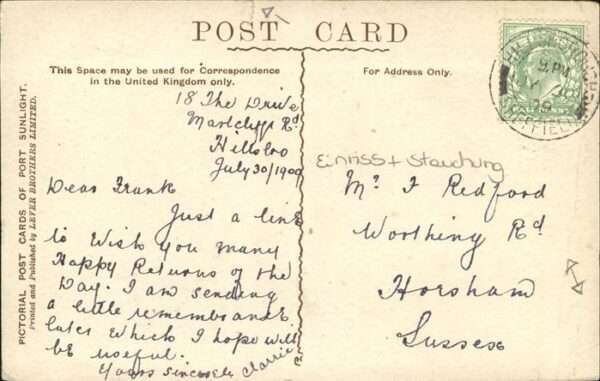 POST CARD
This Space may be used for Correspondence
in the United Kingdom only.
For Address Only.
PICTORIAL POST CARDS OF PORT SUNLIGHT.
Printed and Published by LEVER BROTHERS LIMITED.
18 The Drive
Rd
Hillsbro
July 30/1909
Dear Frank
Just a line
to Wish you many
Happy Returns of the
Day. I am sending
a little remembrance
later which I hope will
be useful.
Yours sincerely Clarrie
Einriss + Stauchung
Mr F Redford
Worthing Rd
Horsham
Sussex
HILLSBOROUGH
PM
SHEFFIELD